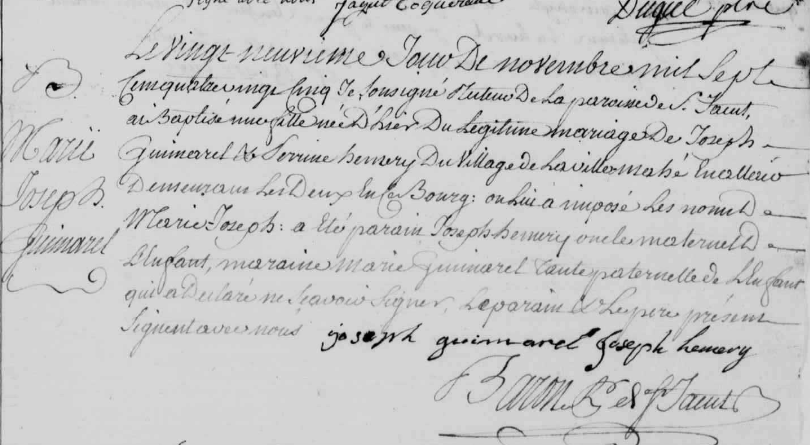 signé avec nous Jaquet Coquereau
Duquel ptre
Le vingt neuvieme Jour De novembre mil Sept
Cent quatre vingt Cinq Je Soussigné Recteur De La paroisse de St Jacut,
ai Baptisé une fille née D'hier Du Legitime mariage De Joseph
Guimarel & Perrine hemery Du village de La ville mahé En allerio
Demeurans Les Deux En Ce Bourg : on Lui a imposé Les noms De
Marie Joseph : a été parain Joseph hemery oncle maternel De
L'enfant, maraine Marie Guimarel Tante paternelle de L'Enfant
qui a Declaré ne Scavoir Signer, Le parain & Le pere présent
Signent avec nous joseph guimarel Joseph hemery
Baron Rr de St Jacut
B.
Marie
Joseph
Guimarel